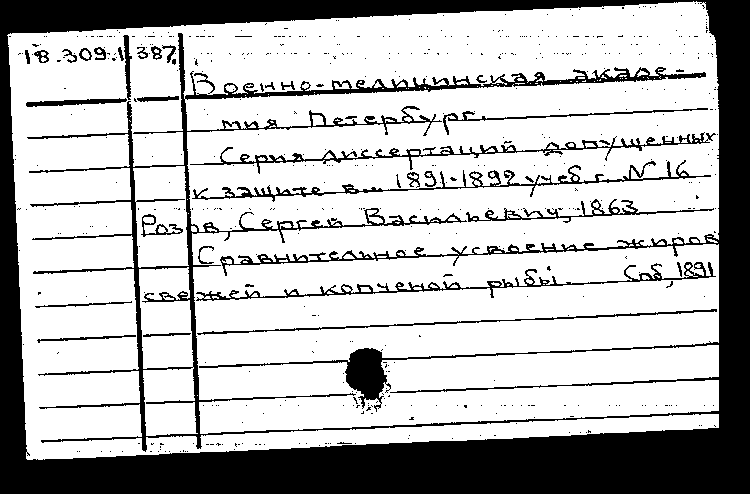 18.309.1.387.
Военно-медицинская акаде-
мия. Петербург.
Серия диссертаций допущенных
к защите в... 1891-1892 учеб. г. N 16
Розов, Сергей Васильевич, 1863
Сравнительное усвоение жиров
свежей и копченой рыбы. Спб, 1891